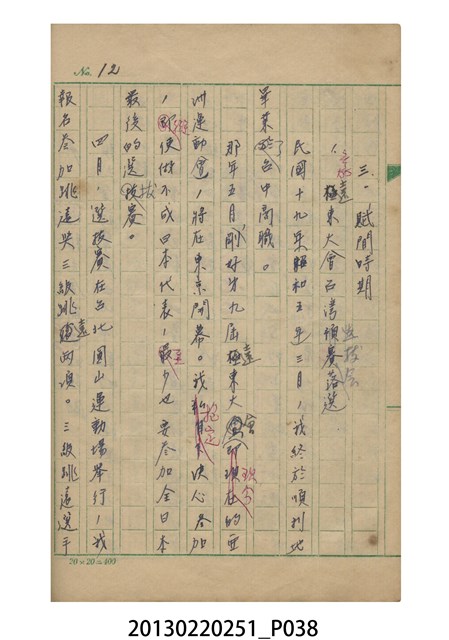 No. 12
三. 賦閒時期
1. 參加遠東大會台灣預賽落選
選拔会
民國十九年昭和五年三月，我終於順利地
畢業於台中商職。
那年五月，剛好第九屆遠東大會即現在的亞
洲運動會，將在東京開幕。我抱定決心參加
，縱使做不成日本代表，至少也要參加全日本
最後的選拔賽。
四月，選拔賽在台北圓山運動場舉行，我
報名參加跳遠與三級跳遠兩項。三級跳遠選手
20×20=400
20130220251_P038